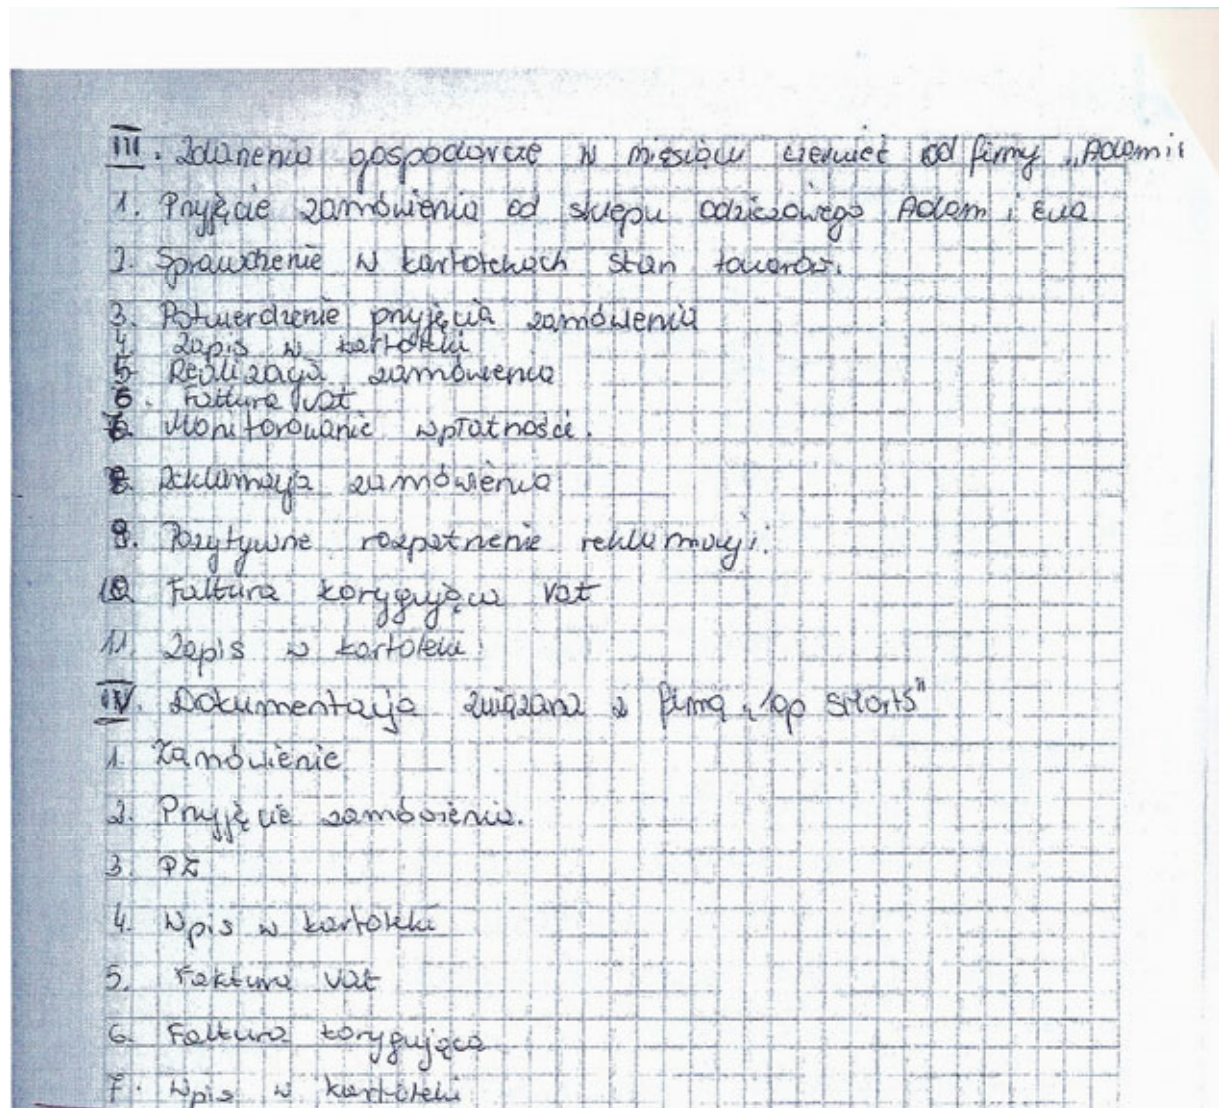 III. Zdarzenia gospodarcze w miesiącu czerwiec od firmy „Adam i
1. Przyjęcie zamówienia od sklepu odzieżowego Adam i Ewa
2. Sprawdzenie w kartotekach stan towarów.
3. Potwierdzenie przyjęcia zamówienia
4. Zapis w kartoteki
5. Realizacja zamówienia
6. Faktura vat
7. Monitorowanie wpłatności.
8. Reklamacja zamówienia
9. Pozytywne rozpatrzenie reklamacji.
10. Faktura korygująca vat
11. Zapis w kartoteki
IV. Dokumentacja związana z firmą „Top
1. Zamówienie
2. Przyjęcie zamówienia.
3. PZ
4. Wpis w kartoteki
5. Faktura vat
6. Faktura korygująca
7. Wpis w kartoteki